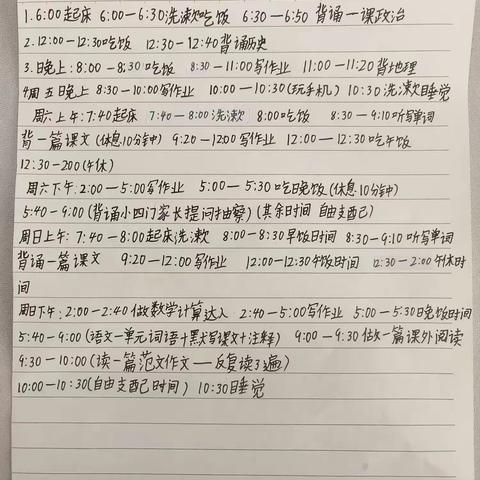 1.6:00起床 6:00—6:30洗漱吃饭 6:30—6:50 背诵一课政治
2.12:00—12:30吃饭 12:30—12:40背诵历史
3.日晚上:8:00—8:30吃饭 8:30—11:00写作业 11:00—11:20背地理
4周五日晚上 8:30—10:00写作业 10:00—10:30(玩手机) 10:30洗漱睡觉
周六上午:7:40起床 7:40—8:00洗漱 8:00吃饭 8:30—9:10听写单词
背一篇课文(休息10分钟) 9:20—1200写作业 12:00—12:30吃午饭
12:30-200(午休)
周六下午:2:00—5:00写作业 5:00—5:30吃晚饭(休息10分钟)
5:40-9:00(背诵小四门家长提问抽察)(其余时间 自由支配)
周日上午:7:40—8:00起床洗漱 8:00—8:30早饭时间 8:30-9:10听写单词
背诵一篇课文 9:20—12:00写作业 12:00—12:30午饭时间 12:30-2:00午休时
间
周日下午:2:00-2:40做数学计算达人 2:40-5:00写作业 5:00—5:30晚饭时间
5:40-9:00(语文一单元词语+默写课文+注释) 9:00—9:30做一篇课外阅读
9:30-10:00(读一篇范文作文——反复读3遍)
10:00—10:30(自由支配时间) 10:30睡觉